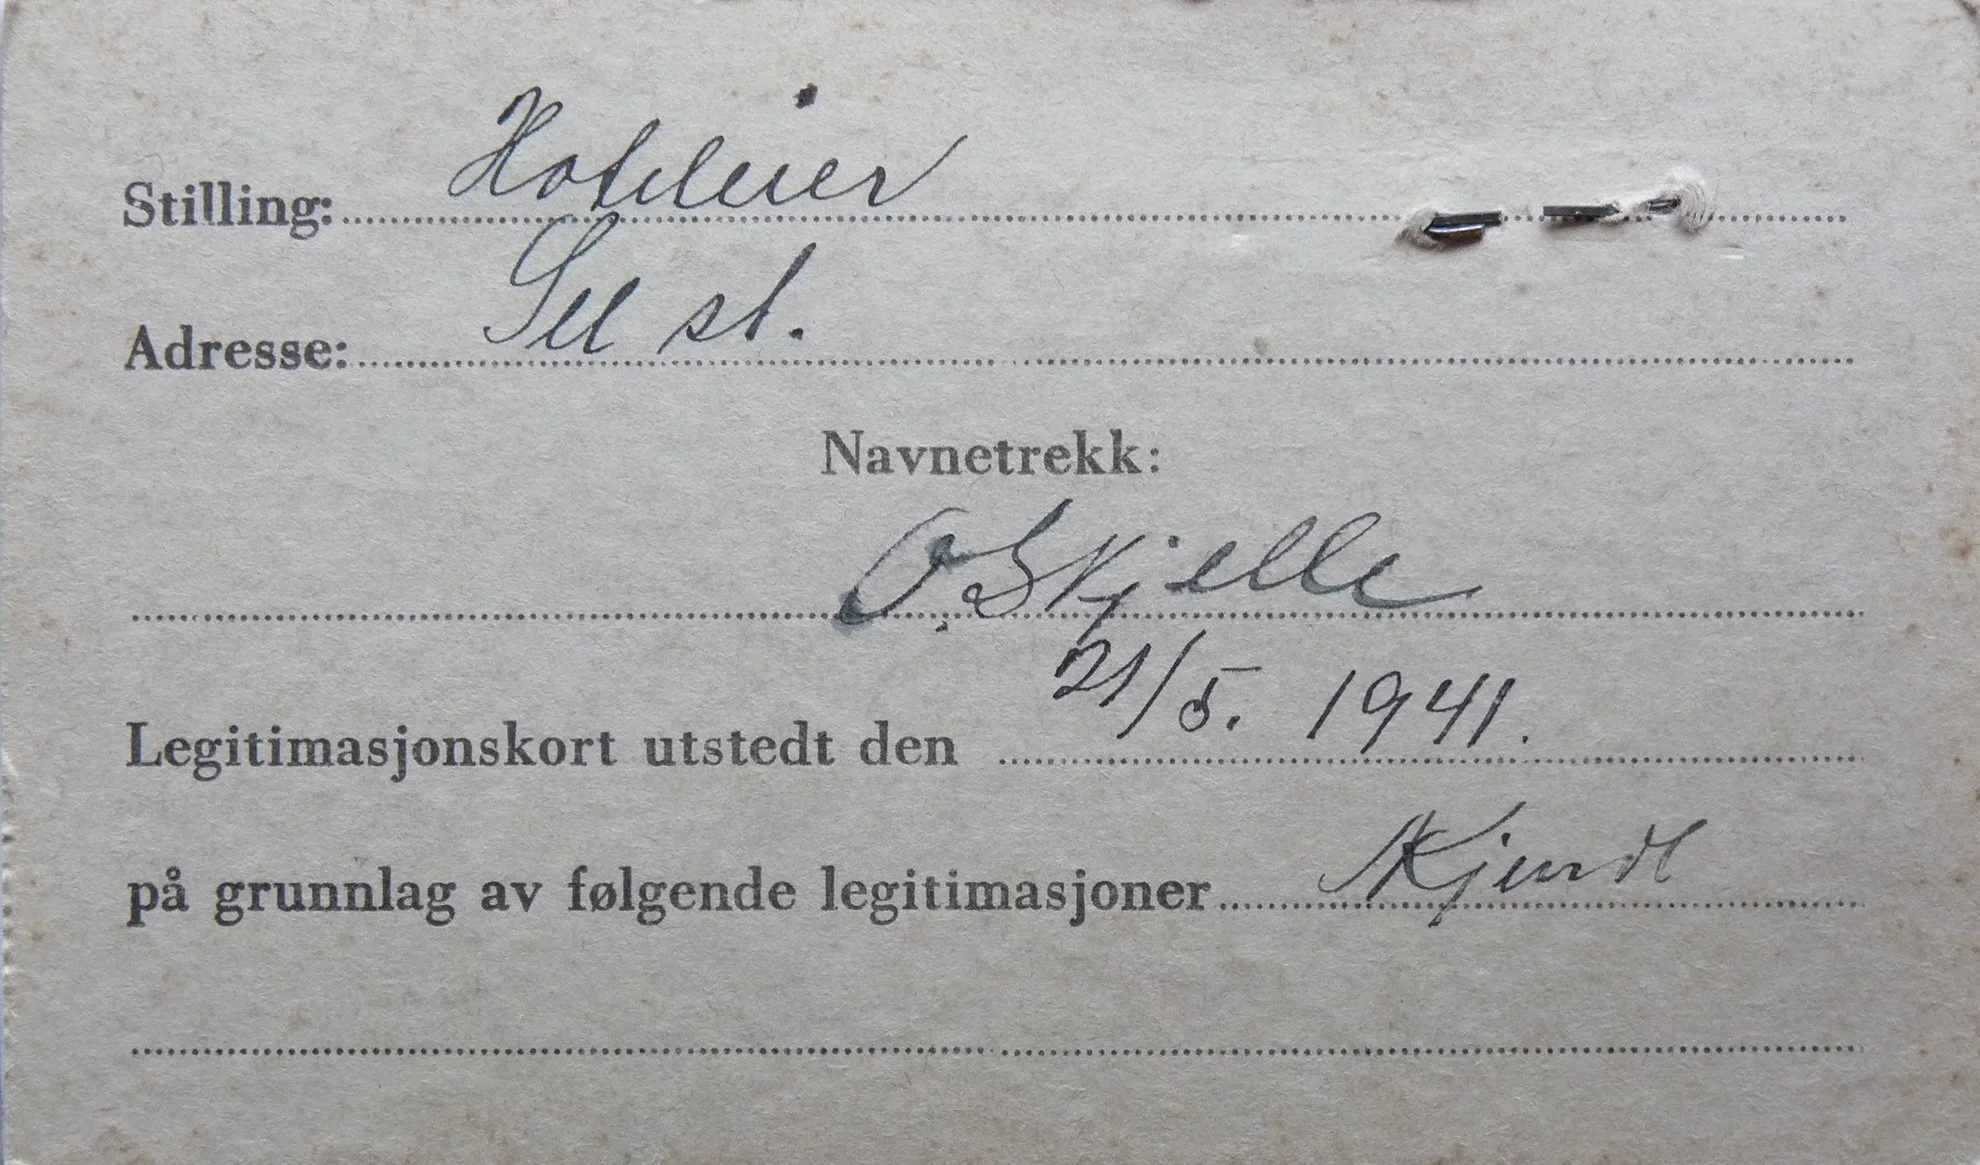 Stilling: Hoteleier
Adresse: Sel st.
Navnetrekk:
O. Skjelle
Legitimasjonskort utstedt den 21/5. 1941.
på grunnlag av følgende legitimasjoner Kjendt